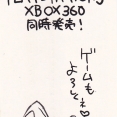 XBOX360
同時発売!
ゲームも
よろしくぇ♥